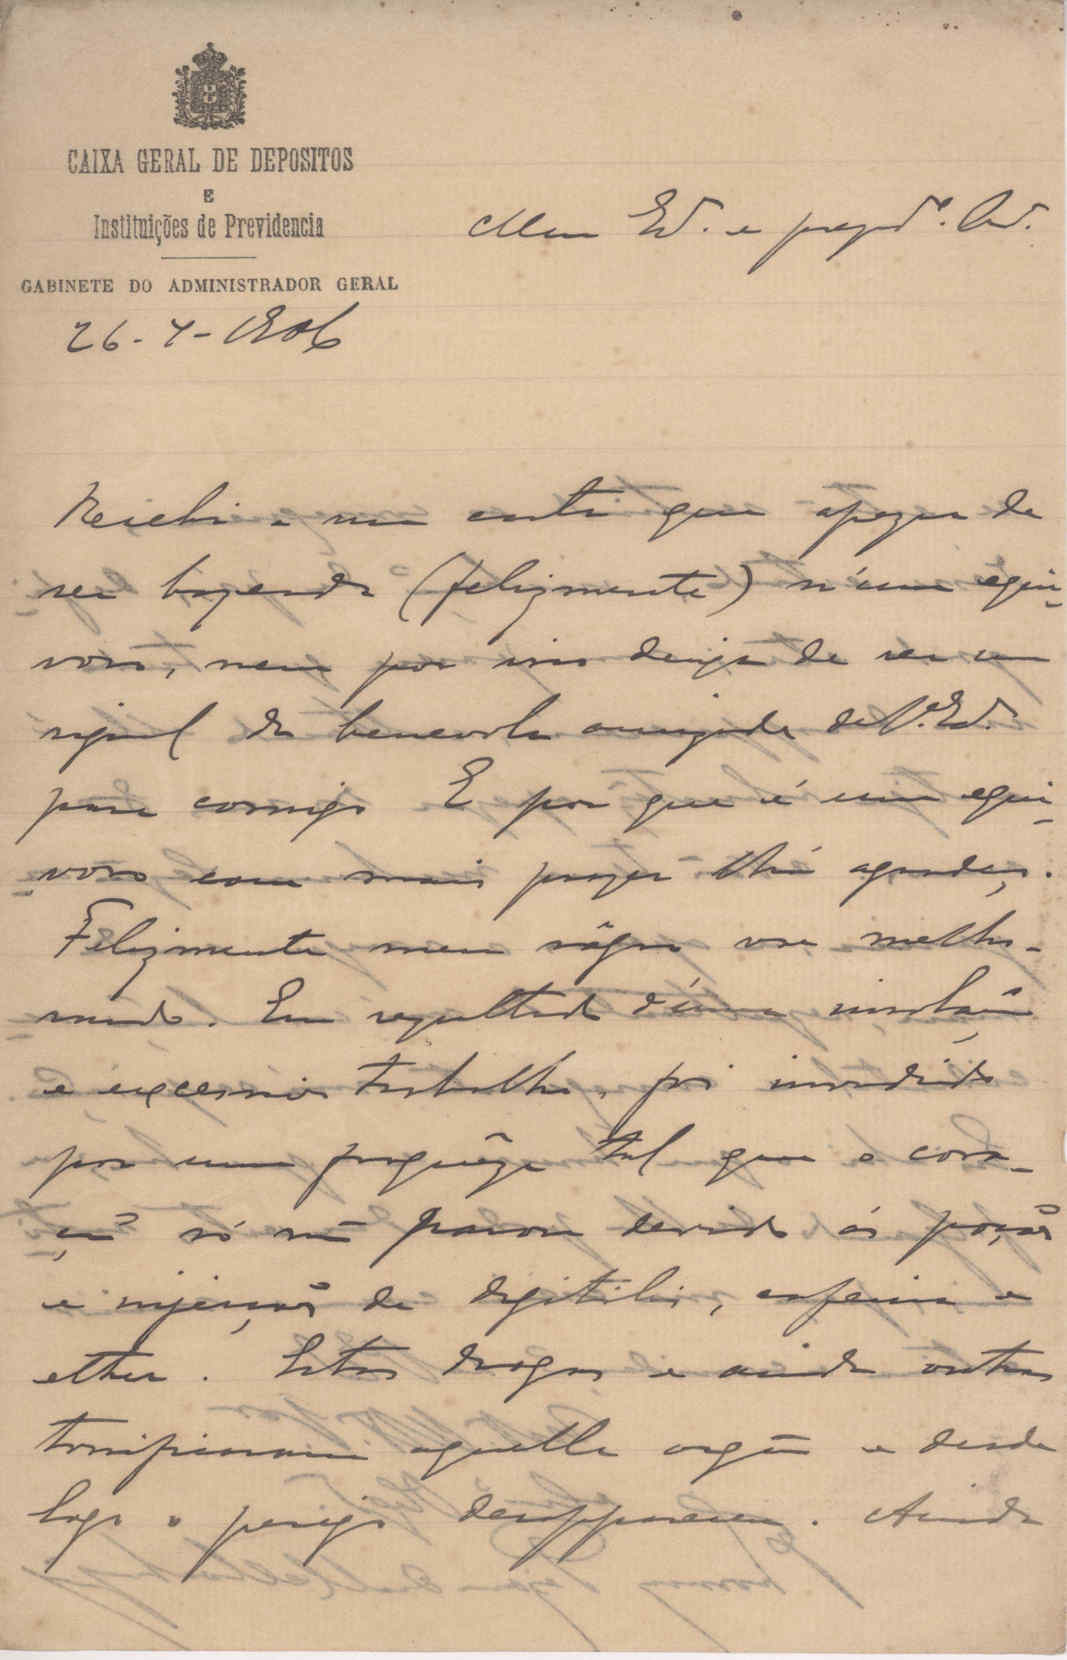 CAIXA GERAL DE DEPOSITOS
E
Instituições de Previdencia
GABINETE DO ADMINISTRADOR GERAL
26-7-1906
Meu Ex.º e prezad.º Am.
Recebi a sua carta que apezar de
ser bazeada (felizmente) n'um equi-
voco, nem por isso deixa de ser um
signal da benevola amizade de V. Ex.
para comigo E por que é um equi-
voco com mais prazer lh'a agradeço.
Felizmente meu sôgro vae melho-
rando. Em rezultado d'uma insolação
e excessivo trabalho, foi invadido
por uma fraquêza tal que o cora-
ção só não parou devido ás poções
e injecções de digitalis, cafeina e
ether. Estas drogas e ainda outras
tonificaram aquelle orgão e desde
logo o perigo desappareceu. Ainda